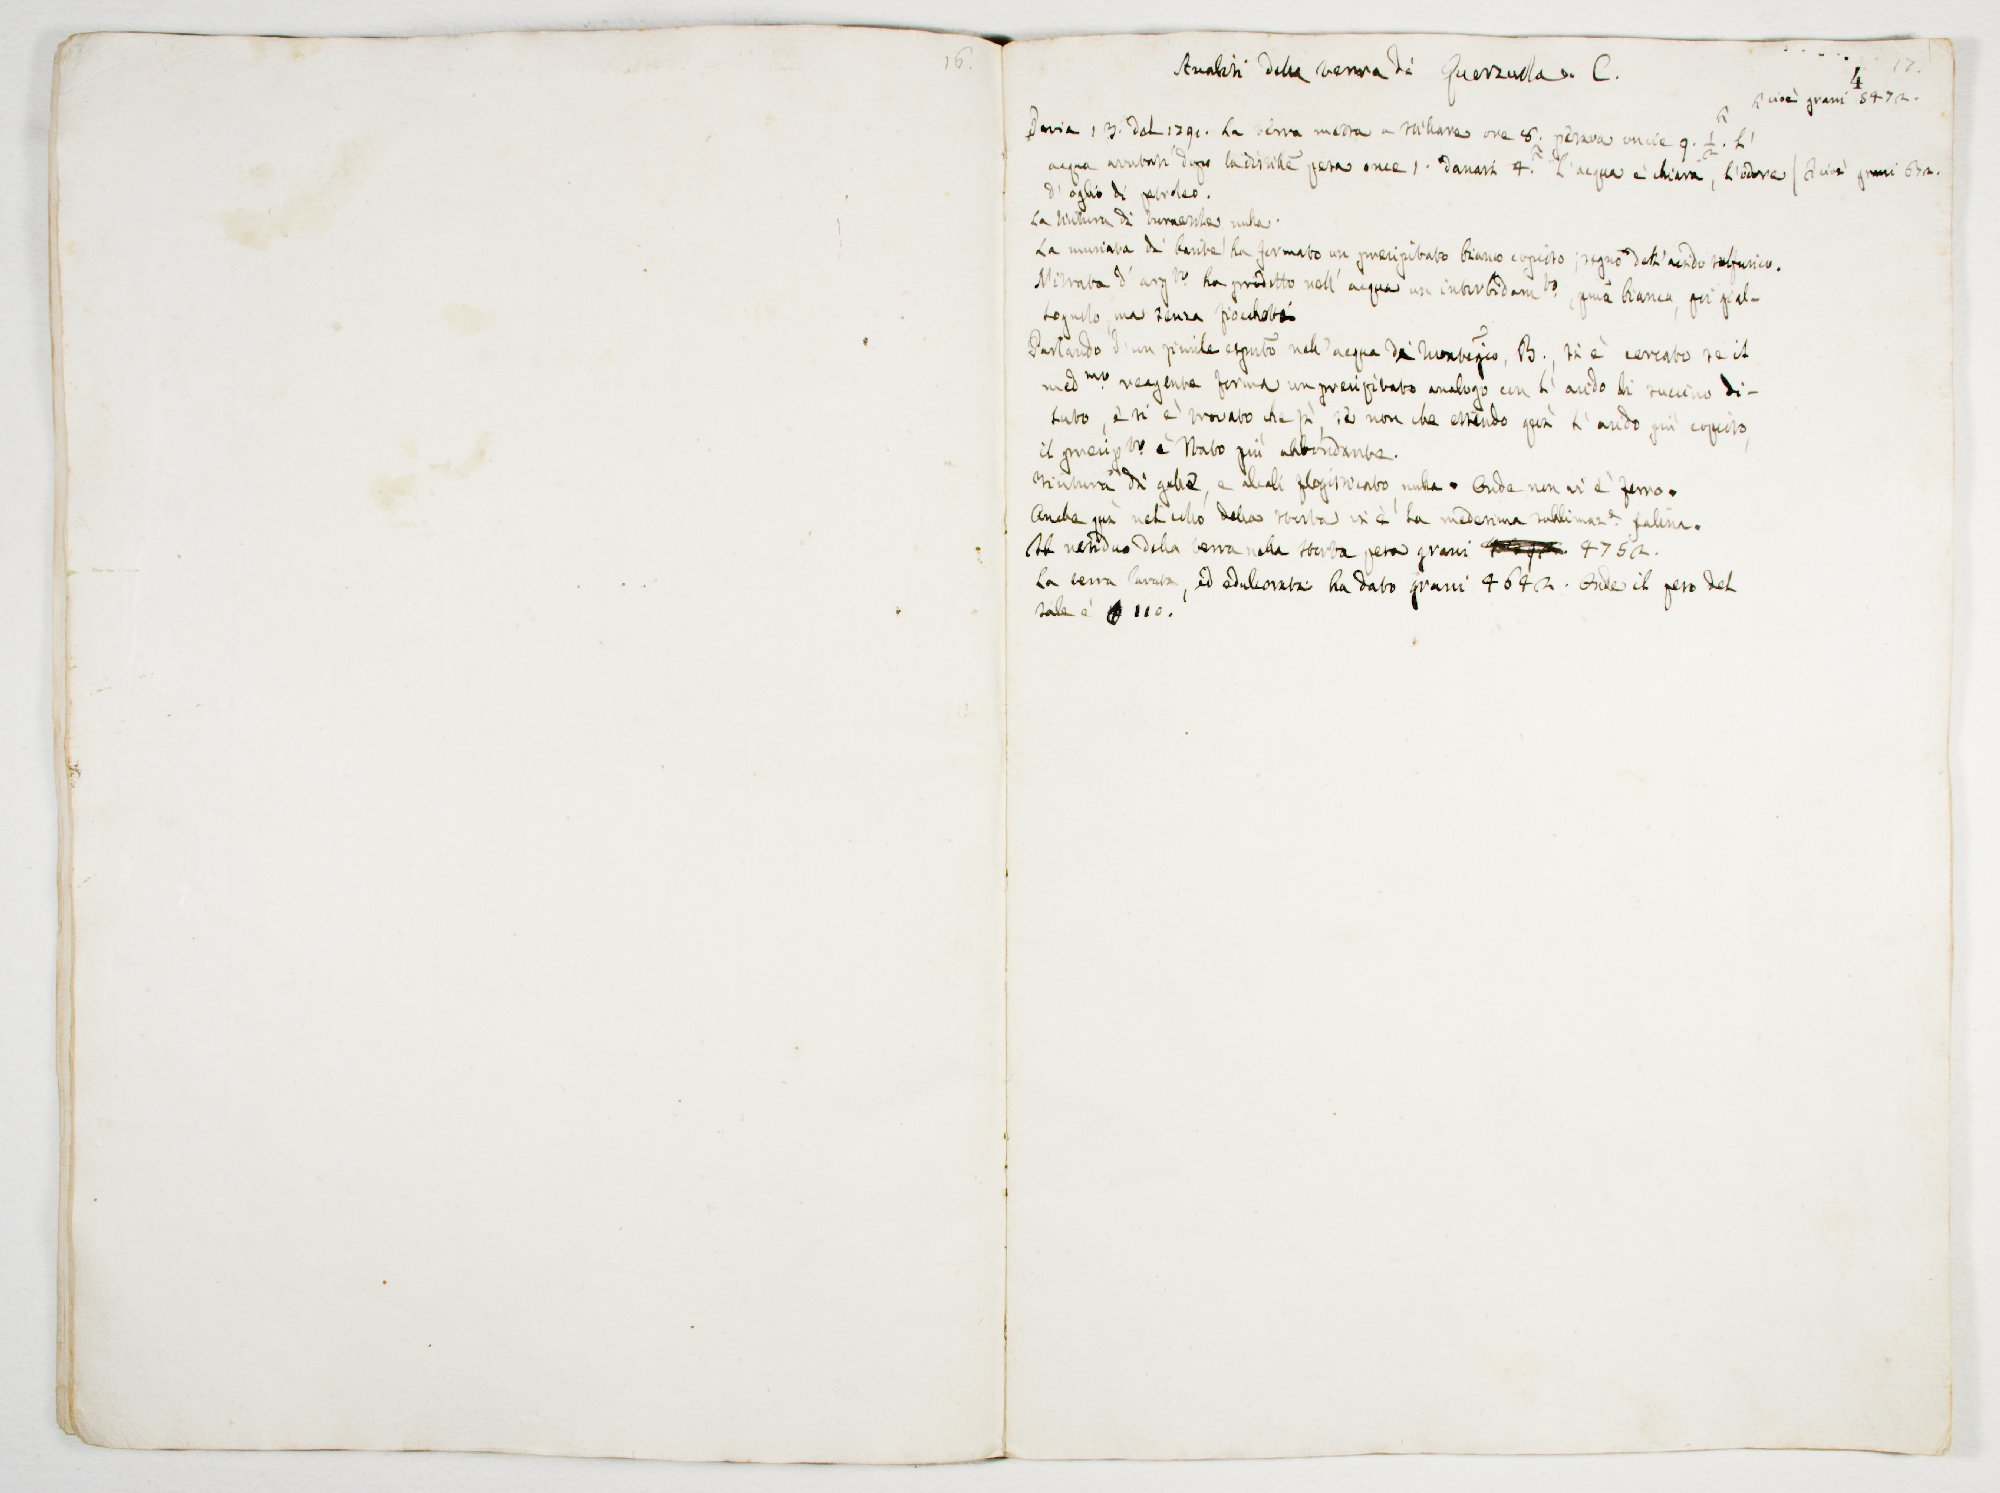 16.
17.
Analisi della terra di Querzuola. C.
è cioè grani 5472.
Pavia 13. del 1791. La terra messa a stillare ore 8. pesava oncie 9. 1/2. L'
acqua avutasi dopo la distille pesa once 1. danari 4. L'acqua è chiara, l'odore | cioè grani 672.
d'oglio di petroleo.
La tintura di turnesole nulla.
La muriata di barite ha formato un precipitato bianco copioso, segno dell'acido solforico.
Nitrata d'argto ha prodotto nell'acqua un intorbidamto, pria bianca, poi gial-
lognolo, ma senza fiocchetti
Parlando d'un simile esperto nell'acqua di B., si è cercato se il
medmo reagente forma un precipitato analogo con l'acido di succino di-
luto, e si è trovato che sì, se non che essendo quì l'acido più copioso,
il precipto è stato più abbondante.
Tintura di galle, e alcali flogisticato, nulla. Onde non vi è ferro.
Anche quì nel collo della storta vi è la medesima sublimaze salina.
Il residuo della terra nella storta pesa grani 4752.
La terra lavata, ed edulcorata ha dato grani 4642. Onde il peso del
sale è 110.